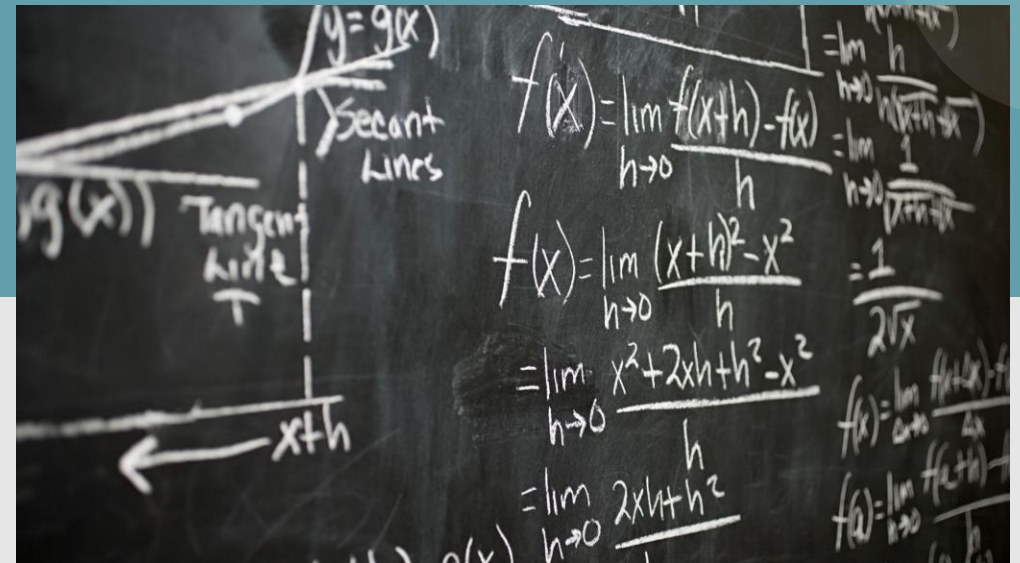 y = g(x)
Secant
Lines
g(x))
Tangent
Line
T
x+h
f'(x) = lim h→0 f(x+h)-f(x) / h
f(x) = lim h→0 (x+h)²-x² / h
= lim h→0 x²+2xh+h²-x² / h
= lim h→0 2xh+h²
= lim h→0 h
= lim h→0 1
= 1 / 2√x
f(x) = lim Δx→0 f(x+Δx)-f / Δx
f(a) = lim h→0 f(a+h)- / h